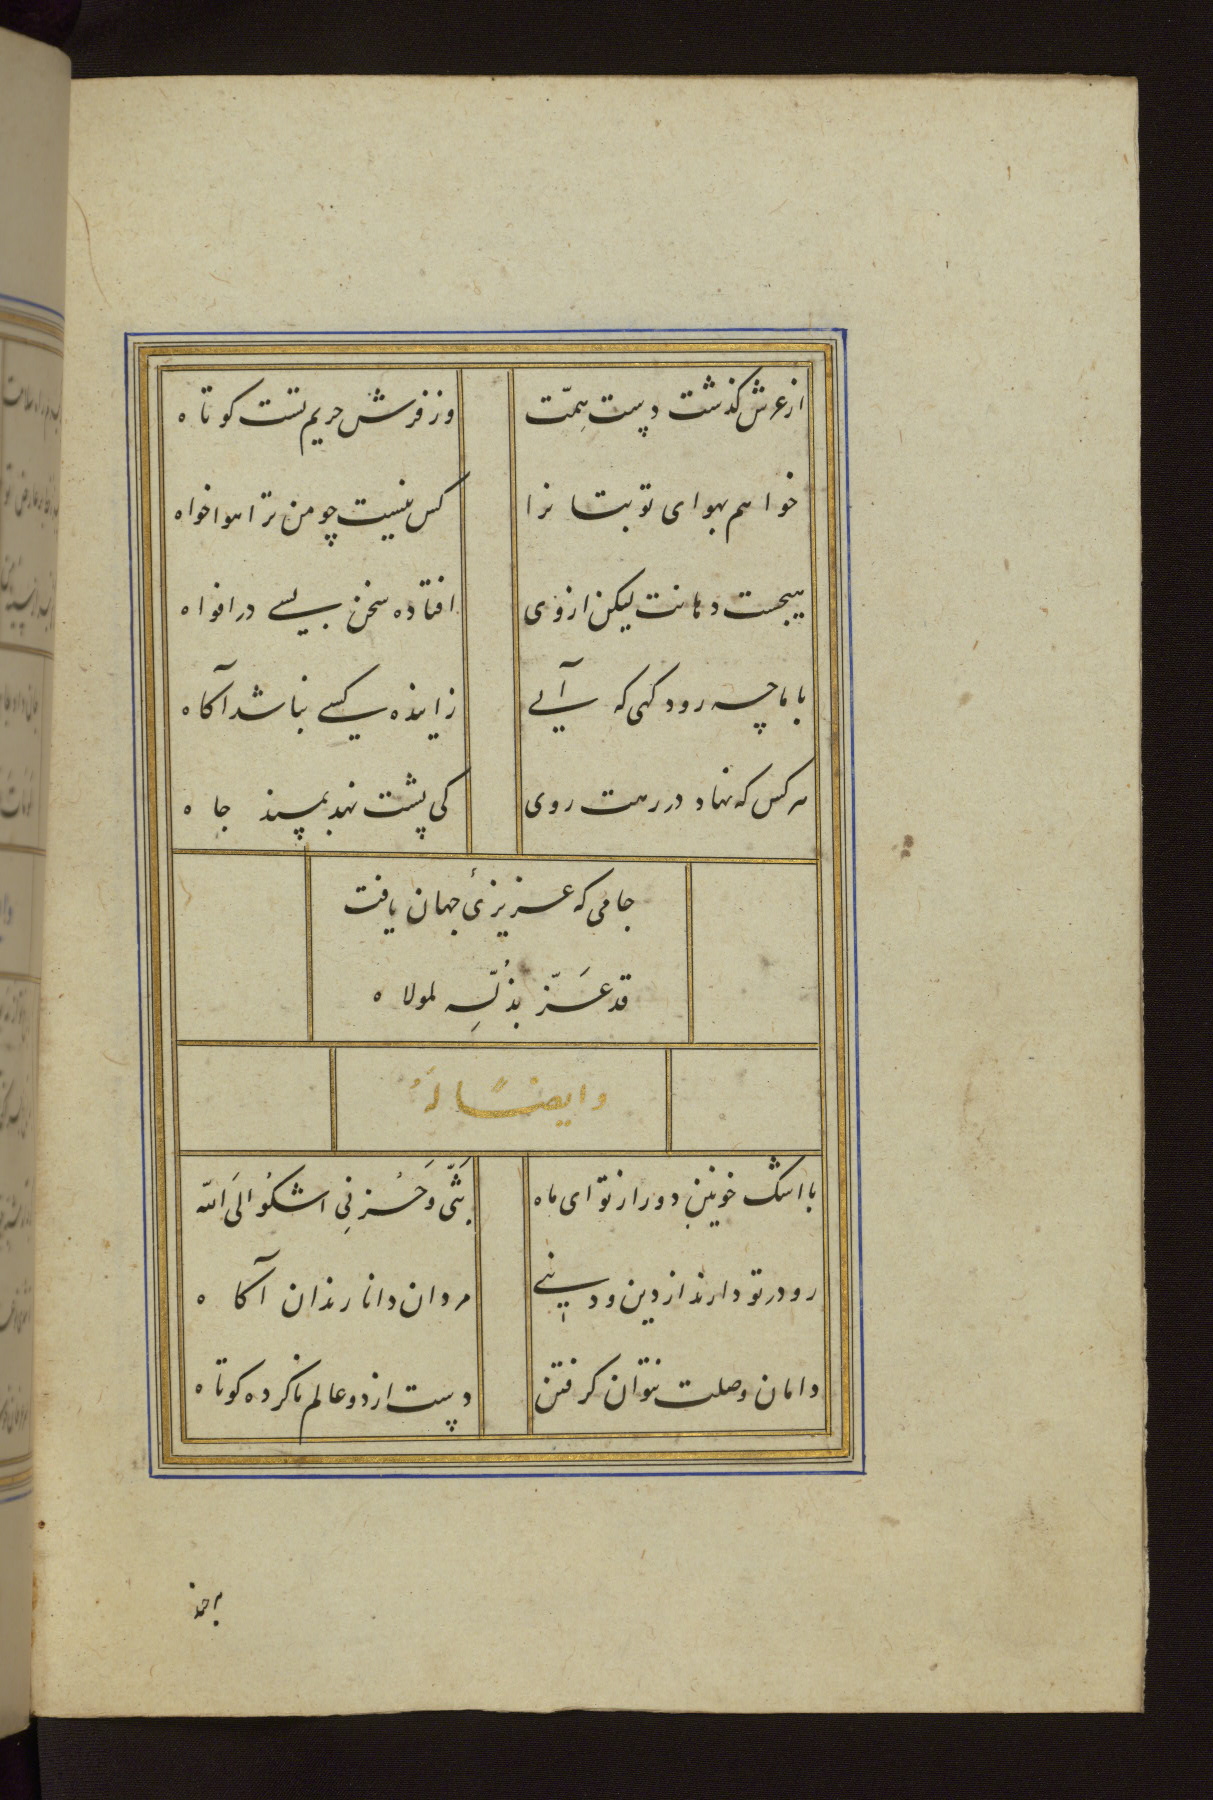 از عرش گذشت دست همّت
وز فرش حریم تست کوتاه
خواهم بهوای تو بتانرا
کس نیست چو من ترا هواخواه
هیچست دهانت لیکن ازوی
افتاده سخن بسی در افواه
با ما چه رود گهی که آیی
زاینده کسی نباشد آگاه
هر کس که نهاد در رهت روی
کی پشت نهد بمسند جاه
جامی که عزیزئ جهان یافت
قد عَزّ بذُلّه لمولاه
وایضاً لَهُ
با اشک خونین دور از تو ای ماه
بَثّی وَحُزنی اشکُو الَی الله
رو در تو دارند از دین و دنیی
مردان دانا رندان آگاه
دامان وصلت نتوان گرفتن
دست از دو عالم ناکرده کوتاه